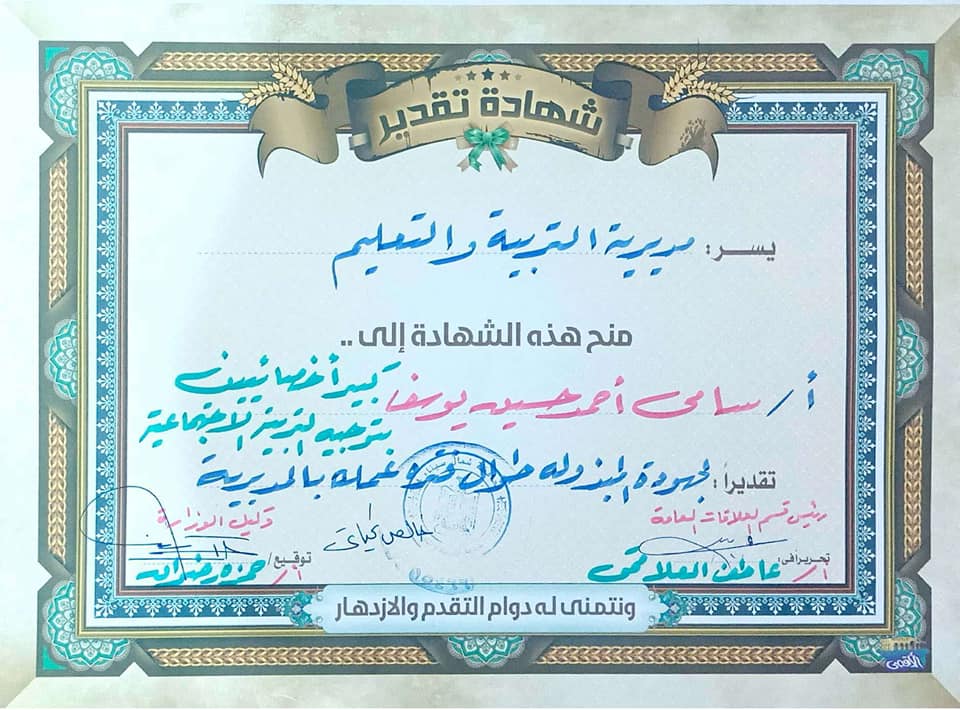 شهادة تقدير
يسر: مديرية التربية والتعليم
منح هذه الشهادة إلى ..
أ/ سامى أحمد حسين يوسف كبير أخصائيين
بتوجيه التربية الاجتماعية
تقديراً: لجهوده المبذوله خلال فترة عمله بالمديرية
رئيس قسم العلاقات العامة
وكيل الوزارة
خالص تحياتى
تحريراً فى/ أ/ عاطف
توقيع/ أ/ حمزه
ونتمنى له دوام التقدم والازدهار
الأقصى